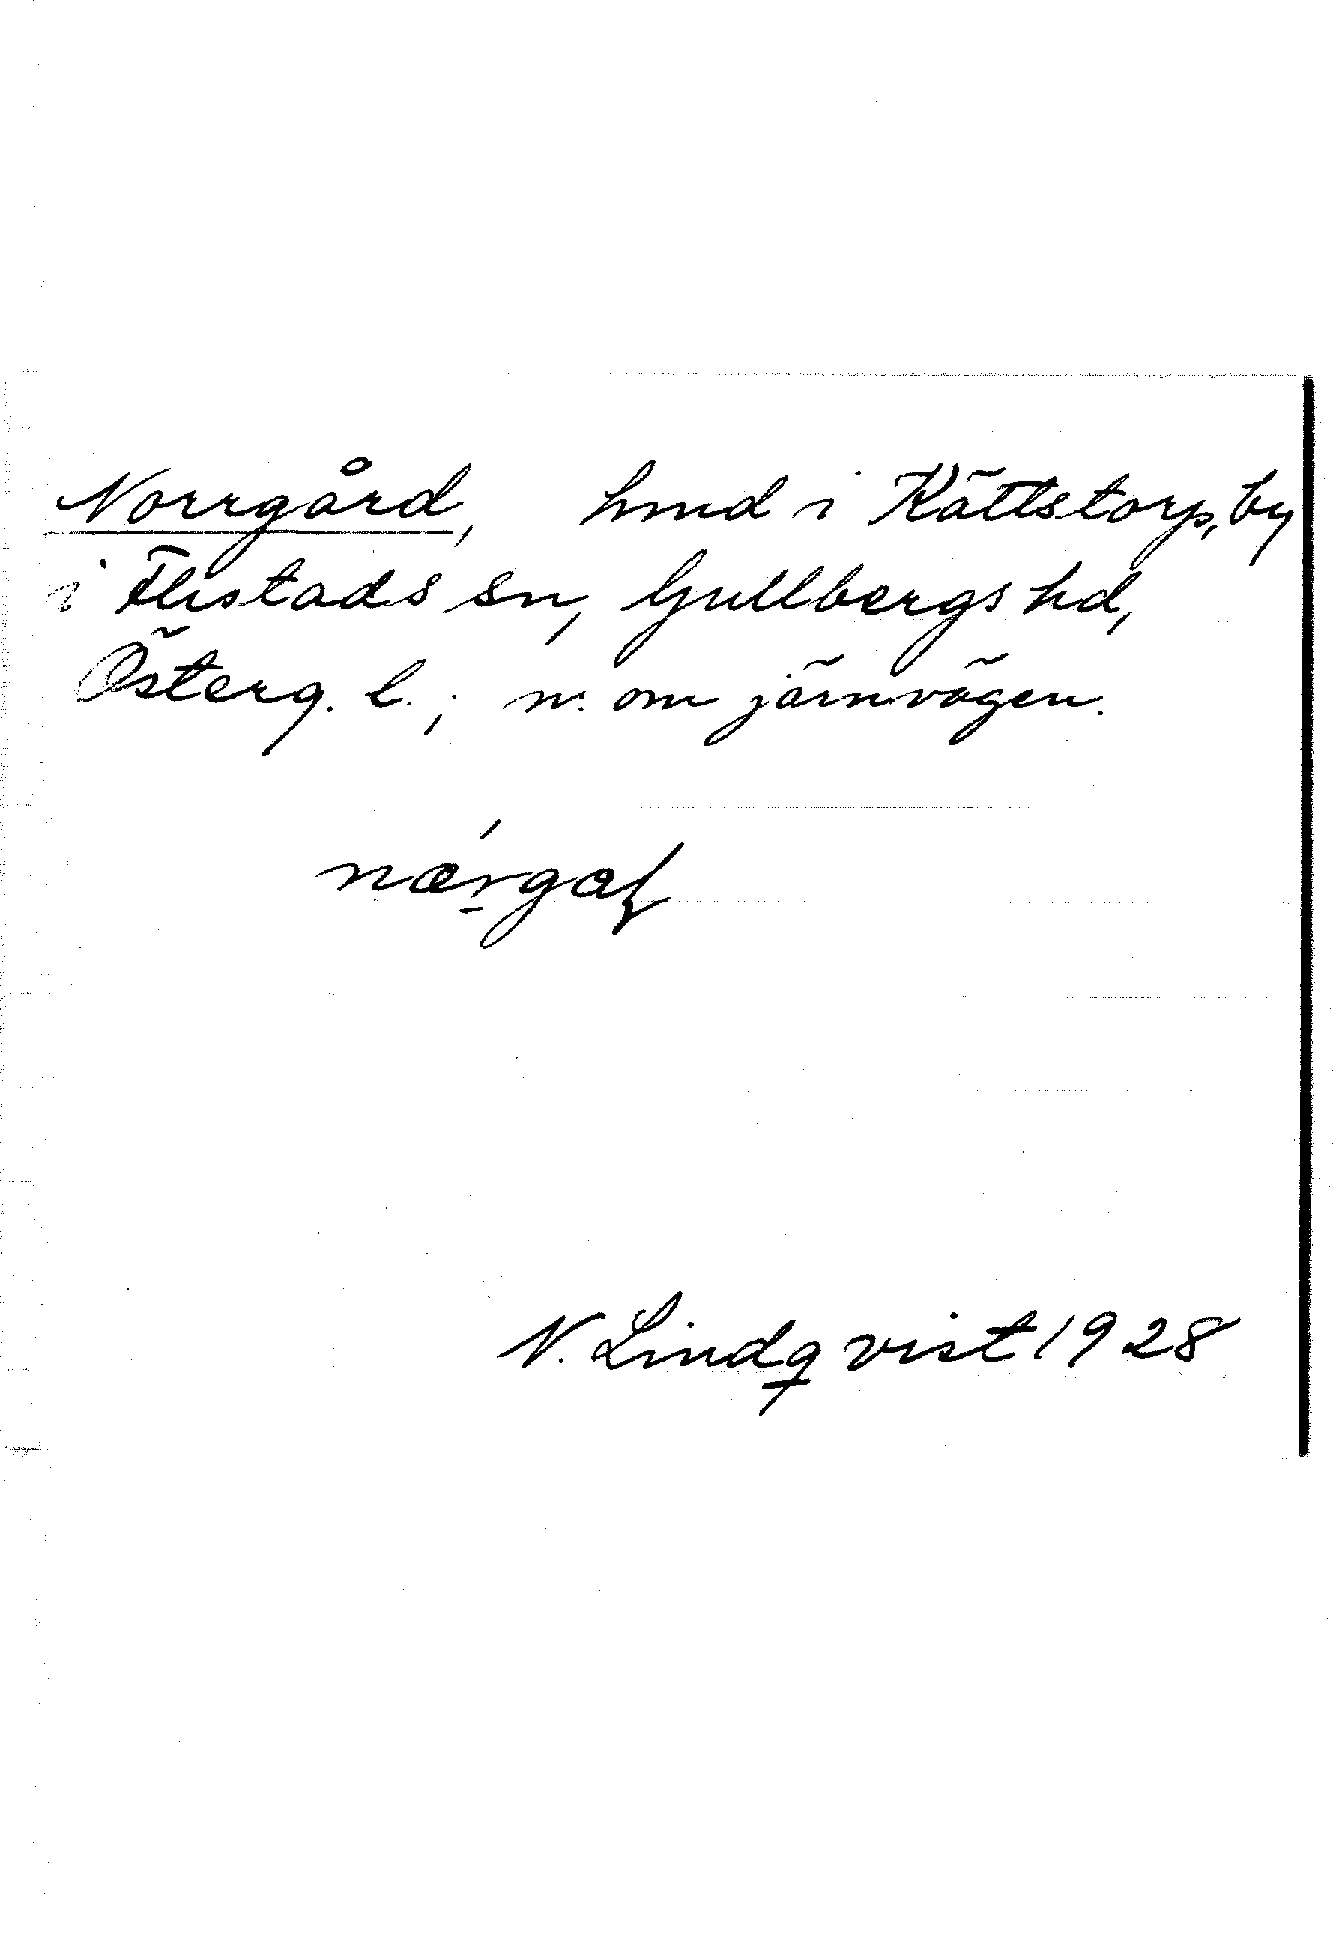 Norrgård, hmd i Kättstorp, by
i Flistads sn, Gullbergs hd,
Österg. l.; n. om järnvägen.
N. Lindqvist 1928